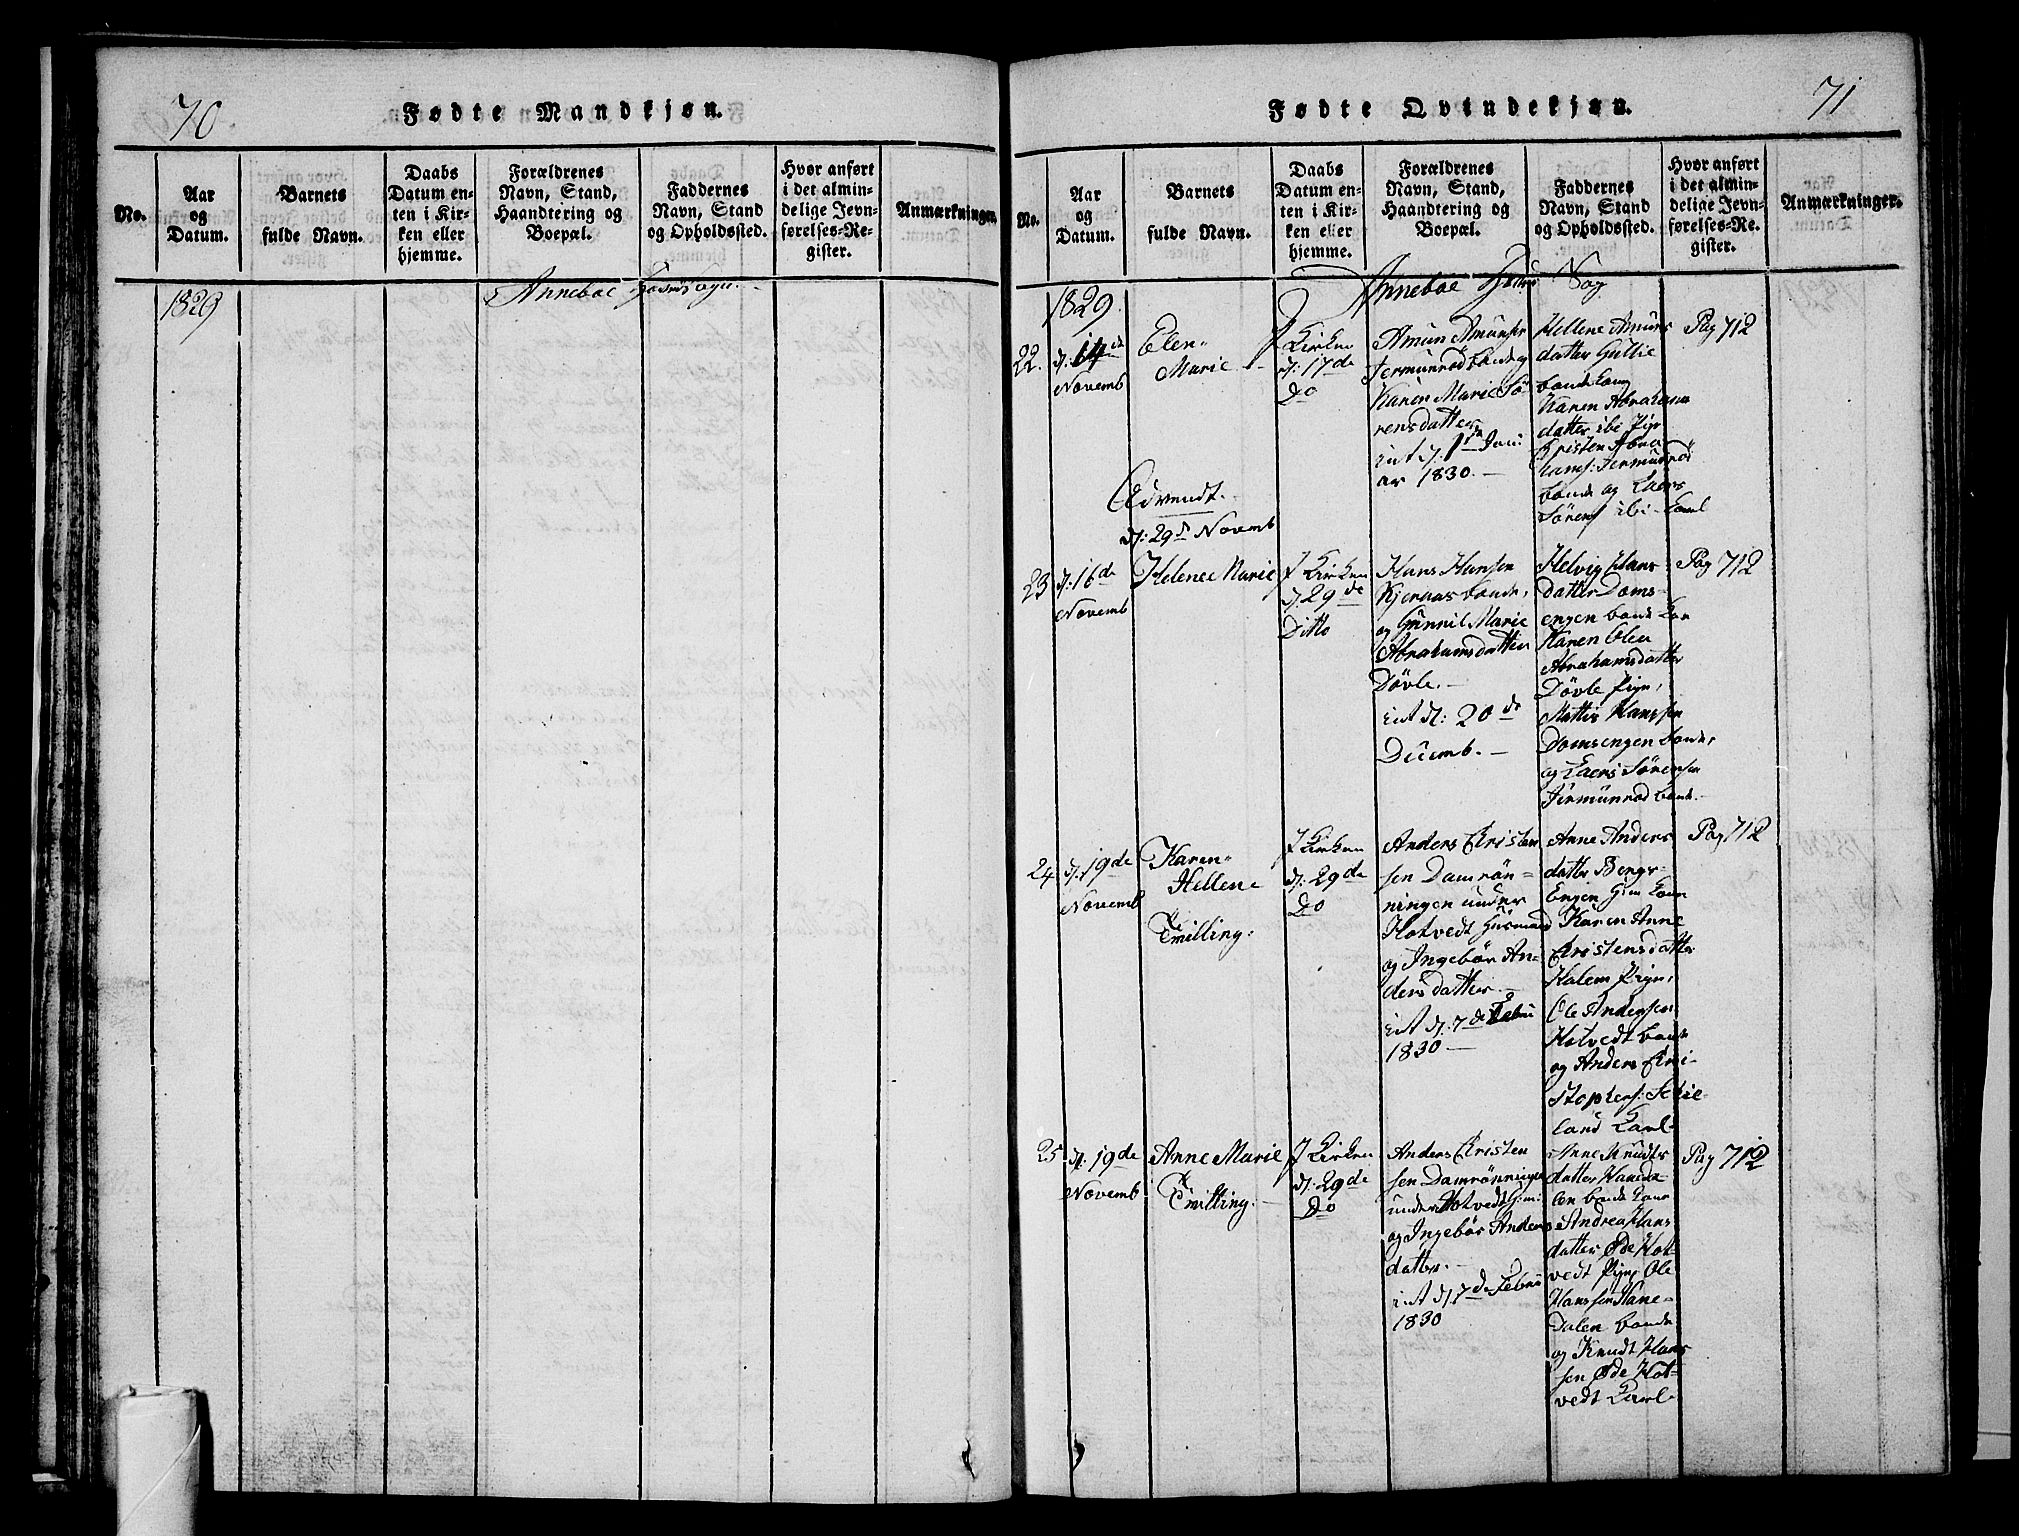 70
Fødte Mandkjøn.
No.
Aar
og
Datum.
Barnets
fulde Navn.
Daabs
Datum en-
ten i Kir-
ken eller
hjemme.
Forældrenes
Navn, Stand,
Haandtering og
Boepæl.
Faddernes
Navn, Stand
og Opholdssted.
Hvor anført
i det almin-
delige Jevn-
førelses-Re-
gister.
Anmærkninger.
1829
Anneboe Hoved Sogn.
71
Fødte Qvindekjøn.
No.
Aar
og
Datum.
Barnets
fulde Navn.
Daabs
Datum en-
ten i Kir-
ken eller
hjemme.
Forældrenes
Navn, Stand,
Haandtering og
Boepæl.
Faddernes
Navn, Stand
og Opholdssted.
Hvor anført
i det almin-
delige Jevn-
førelses-Re-
gister.
Anmærkninger.
Anneboe Sog
1829
22.
d: 14de
Novemb
Elen
Marie
J Kirken
d: 17de
Do
Amun Amunsen
Jermunrød bonde og
Karen Marie Sö
rensdatter
int d. 1ste Janu
ar 1830.
Hellene Amuns
datter Gullie
bonde Kong
Karen Abrahams
datter ibi Pige
Kristen Abra
hams: Jermunrød
bonde og Laers
Sörens ibi Karl
Pag 712
Advendt.
d: 29de Novemb
23
d: 16de
Novemb
Helene Marie
J Kirken
d: 29de
Ditto
Hans Hansen
Kjernaas bonde,
og Gunnil Marie
Abrahamsdatter
Dövle.
int d: 20de
Decemb.
Helvig Hans
datter Doms-
engen bonde Kon
Karen Olea
Abrahamsdatter
Dövle Pige,
Mattis Hanssen
Domsengen bonde,
og Laers Sörensen
Jermunrød bonde.
Pag 712
24
d: 19de
Novemb
Karen
Hellene
Tvilling.
J Kirken
d: 29de
Do
Anders Kristen
sen Damrön-
ningen under
Hotvedt Husmand
og Ingebör An-
dersdatter.
int d: 7de Febru
1830
Anne Anders
datter Bergs-
Engen Kon
Karen Anne
Kristensdatter
Holem Pige,
Ole Andersen
Hotvedt bonde
og Anders Kri-
stophers:
land Karl
Pag 712
25
d. 19de
Novemb
Anne Marie
Tvilling.
J Kirken
d: 29de
Do
Anders Kristen
sen Damrönningen
under Hotvedt Hsm:
og Ingebör Anders
datter.
int d. 7de Febru
1830
Anne Knudts
datter Haneda
len bonde Kone
Andrea Hans
datter Øde Hot-
vedt Pige Ole
Hanssen Hane-
dalen bonde
og Knudt Hans
sen Øde Hot-
vedt Karl
Pag 712